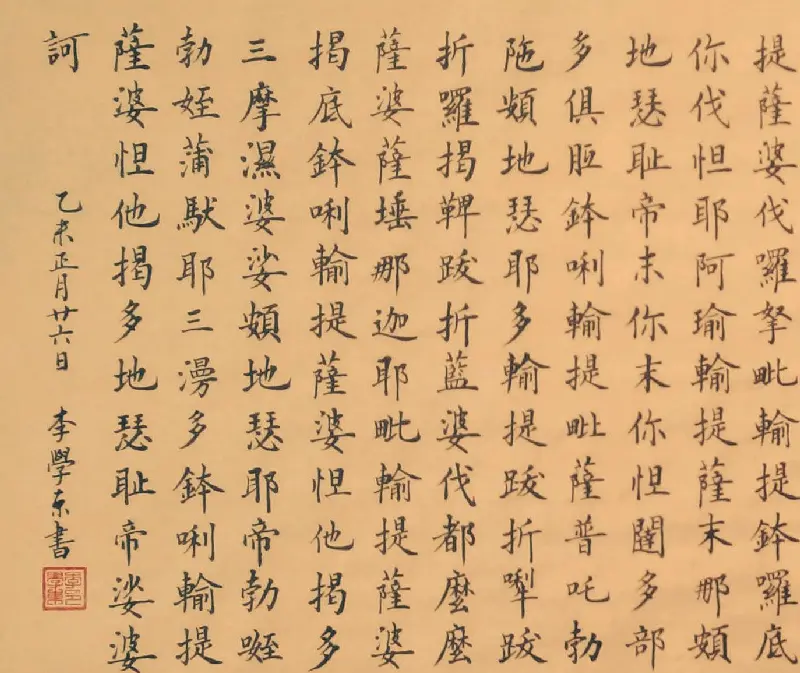 提薩婆伐囉拏毗輸提鉢囉底
你伐怛耶阿瑜輸提薩末那頞
地瑟耻帝末你末你怛闥多部
多俱胝鉢唎輸提毗薩普吒勃
陁頞地瑟耶多輸提跋折犂跋
折囉揭鞞跋折藍婆伐都麼麼
薩婆薩埵那迦耶毗輸提薩婆
揭底鉢唎輸提薩婆怛他揭多
三摩濕婆娑頞地瑟耶帝勃
勃姪蒲馱耶三漫多鉢唎輸提
薩婆怛他揭多地瑟耻帝娑婆
訶
乙未正月廿六日 李學东書